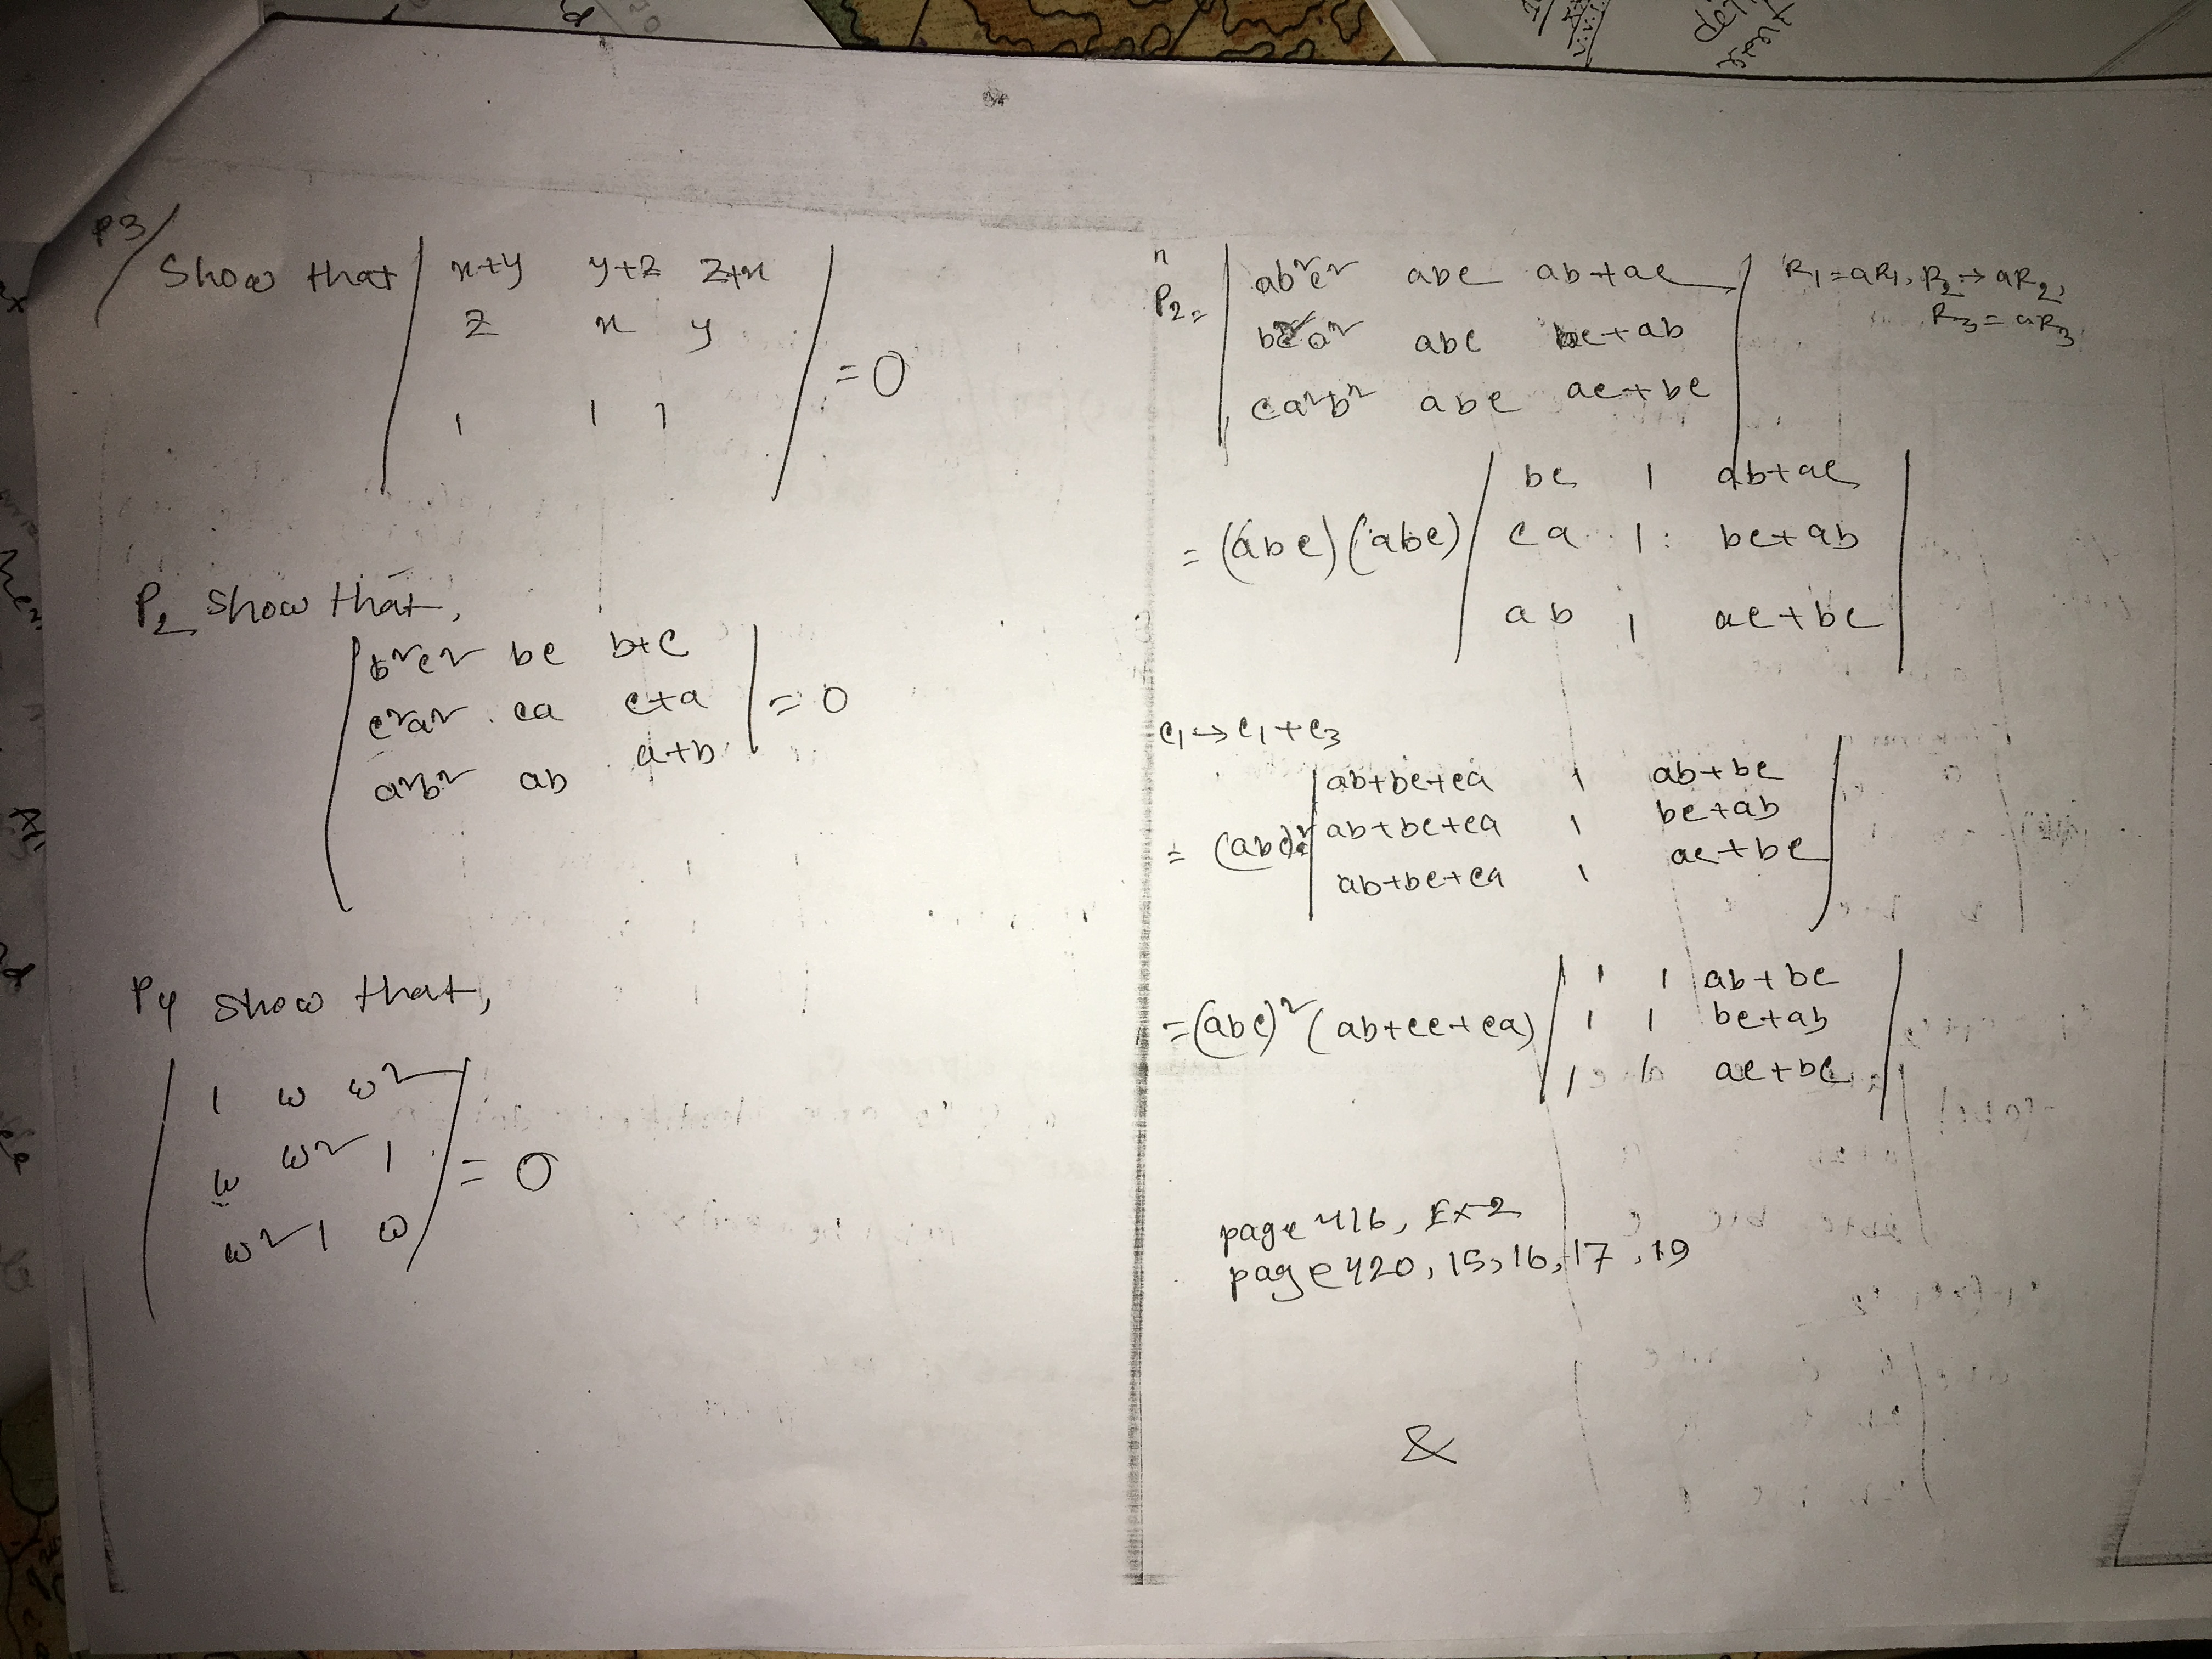 P3/
Show that | x+y y+z z+x |
z x y
= 0
1 1 1
P2 show that,
| b²c² bc b+c |
c²a² ca c+a | = 0
a²b² ab a+b
P4 show that,
| 1 ω ω² |
ω ω² 1 | = 0
ω² 1 ω
n
P2 = | ab²c² abc ab+ac | R1=aR1, R2→aR2,
R3=aR3
bc²a² abc bc+ab
ca²b² abc ac+bc
= (abc)(abc) | bc 1 ab+ac |
ca 1 bc+ab
ab 1 ac+bc
c1→c1+c3
= (abc)² | ab+bc+ca 1 ab+bc |
ab+bc+ca 1 bc+ab
ab+bc+ca 1 ac+bc
= (abc)² (ab+cc+ca) | 1 1 ab+bc |
1 1 bc+ab
1 1 ac+bc
page 416, Ex-2
page 420, 15, 16, 17, 19
&